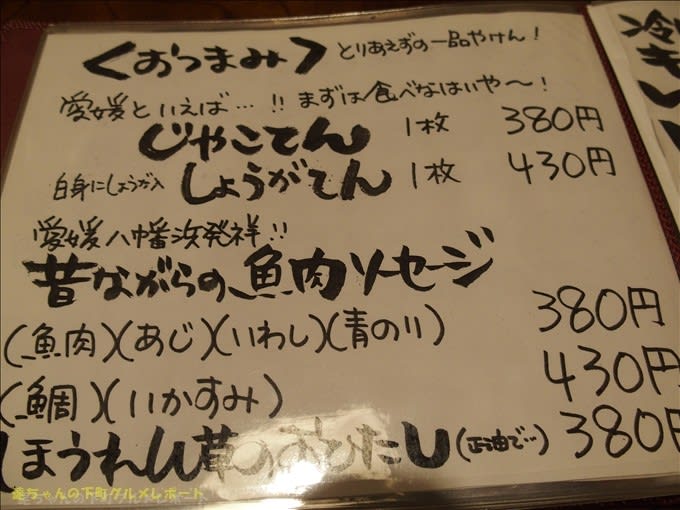 <おつまみ> とりあえずの一品やけん!
愛媛といえば…!! まずは食べなはいや〜!
じゃこてん 1枚 380円
白身にしょうが入 しょうがてん 1枚 430円
愛媛八幡浜発祥!!
昔ながらの魚肉ソーセージ
(魚肉)(あじ)(いわし)(青のり) 380円
(鯛)(いかすみ) 430円
ほうれん草のおひたし(正油で…) 380
ちゃんの下町グルメレポート
冷